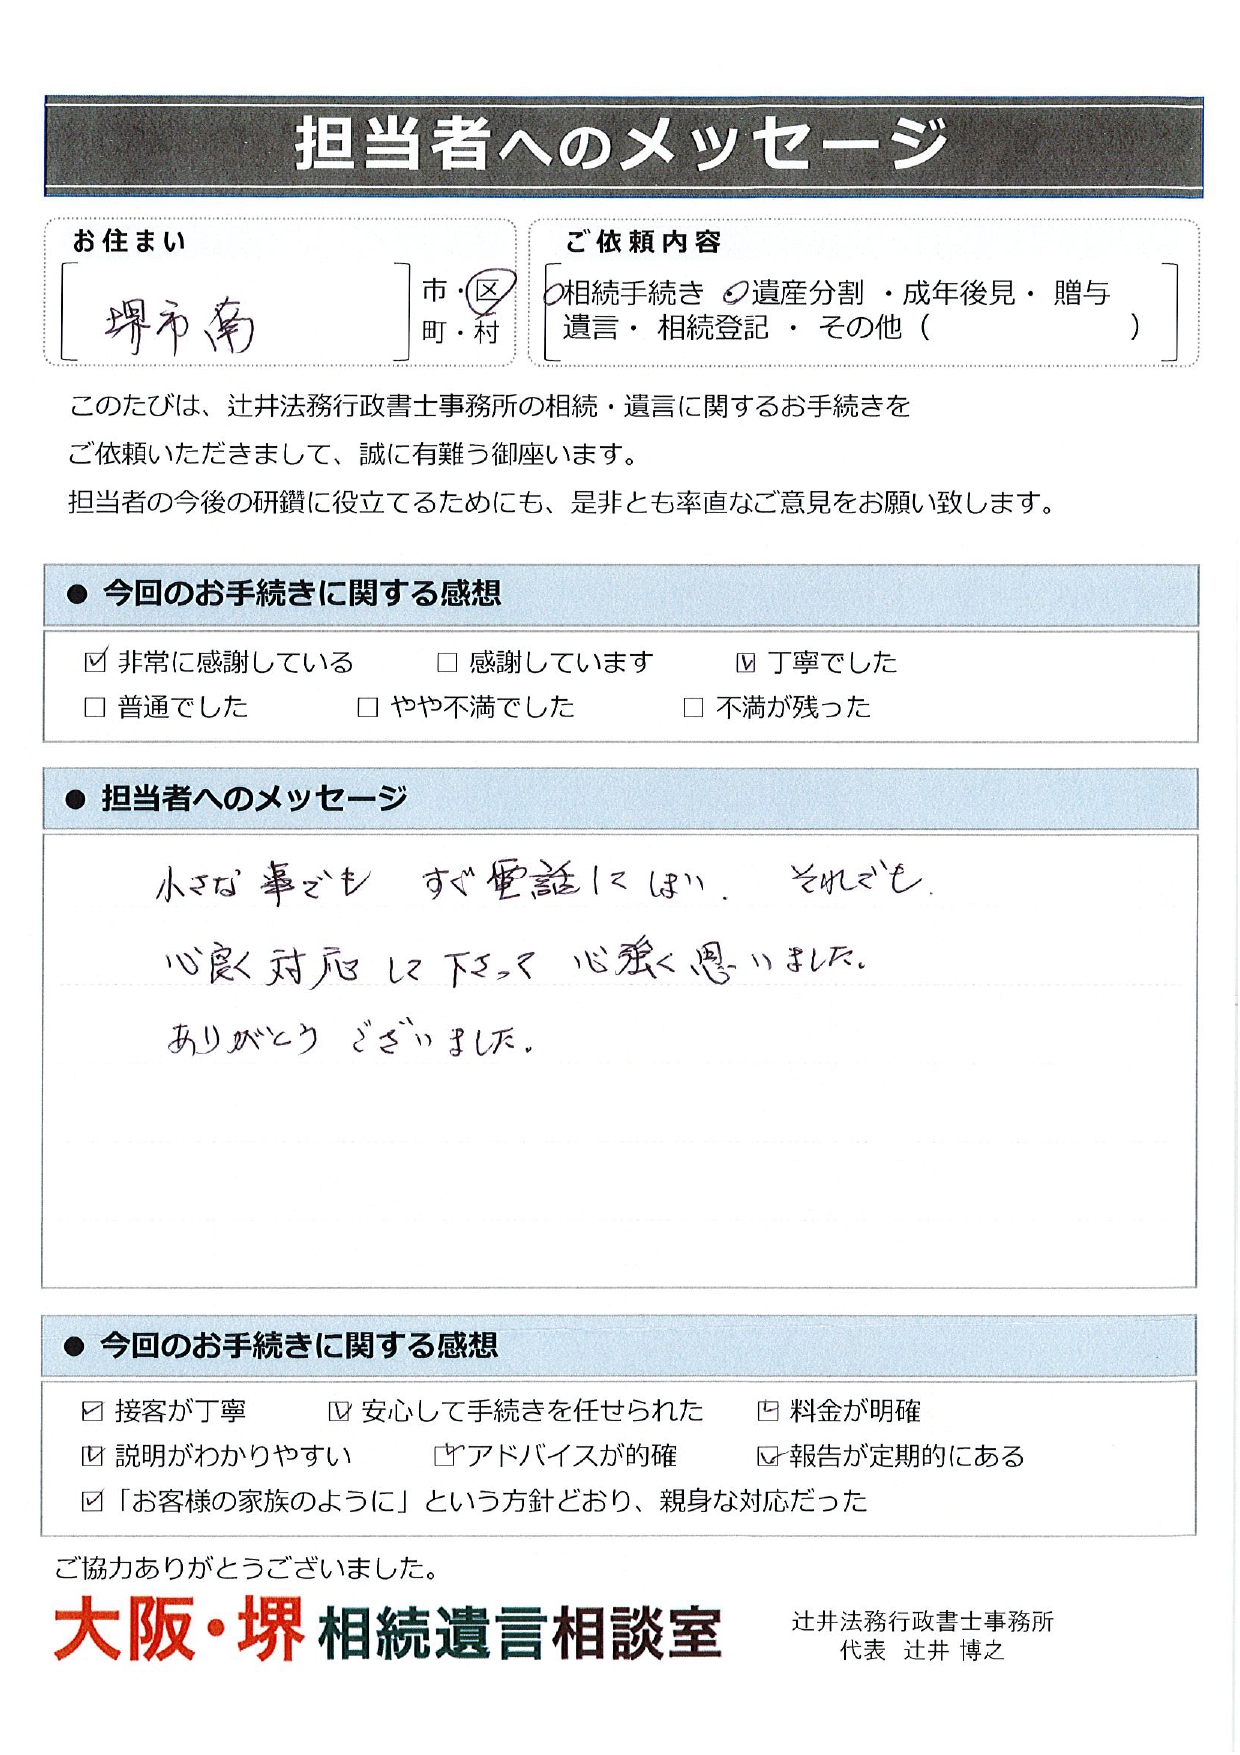 担当者へのメッセージ
お住まい
堺市南
市・区
町・村
ご依頼内容
相続手続き ・遺産分割 ・成年後見・ 贈与
遺言・ 相続登記 ・ その他（ ）
このたびは、辻井法務行政書士事務所の相続・遺言に関するお手続きを
ご依頼いただきまして、誠に有難う御座います。
担当者の今後の研鑽に役立てるためにも、是非とも率直なご意見をお願い致します。
● 今回のお手続きに関する感想
☑ 非常に感謝している □ 感謝しています ☑ 丁寧でした
□ 普通でした □ やや不満でした □ 不満が残った
● 担当者へのメッセージ
小さな事でも すぐ電話して しまい. それでも.
心良く対応して下さって 心強く思いました。
ありがとう ございました。
● 今回のお手続きに関する感想
☑ 接客が丁寧 ☑ 安心して手続きを任せられた ☑ 料金が明確
☑ 説明がわかりやすい ☑ アドバイスが的確 ☑ 報告が定期的にある
☑ 「お客様の家族のように」という方針どおり、親身な対応だった
ご協力ありがとうございました。
大阪・堺 相続遺言相談室
辻井法務行政書士事務所
代表 辻井 博之